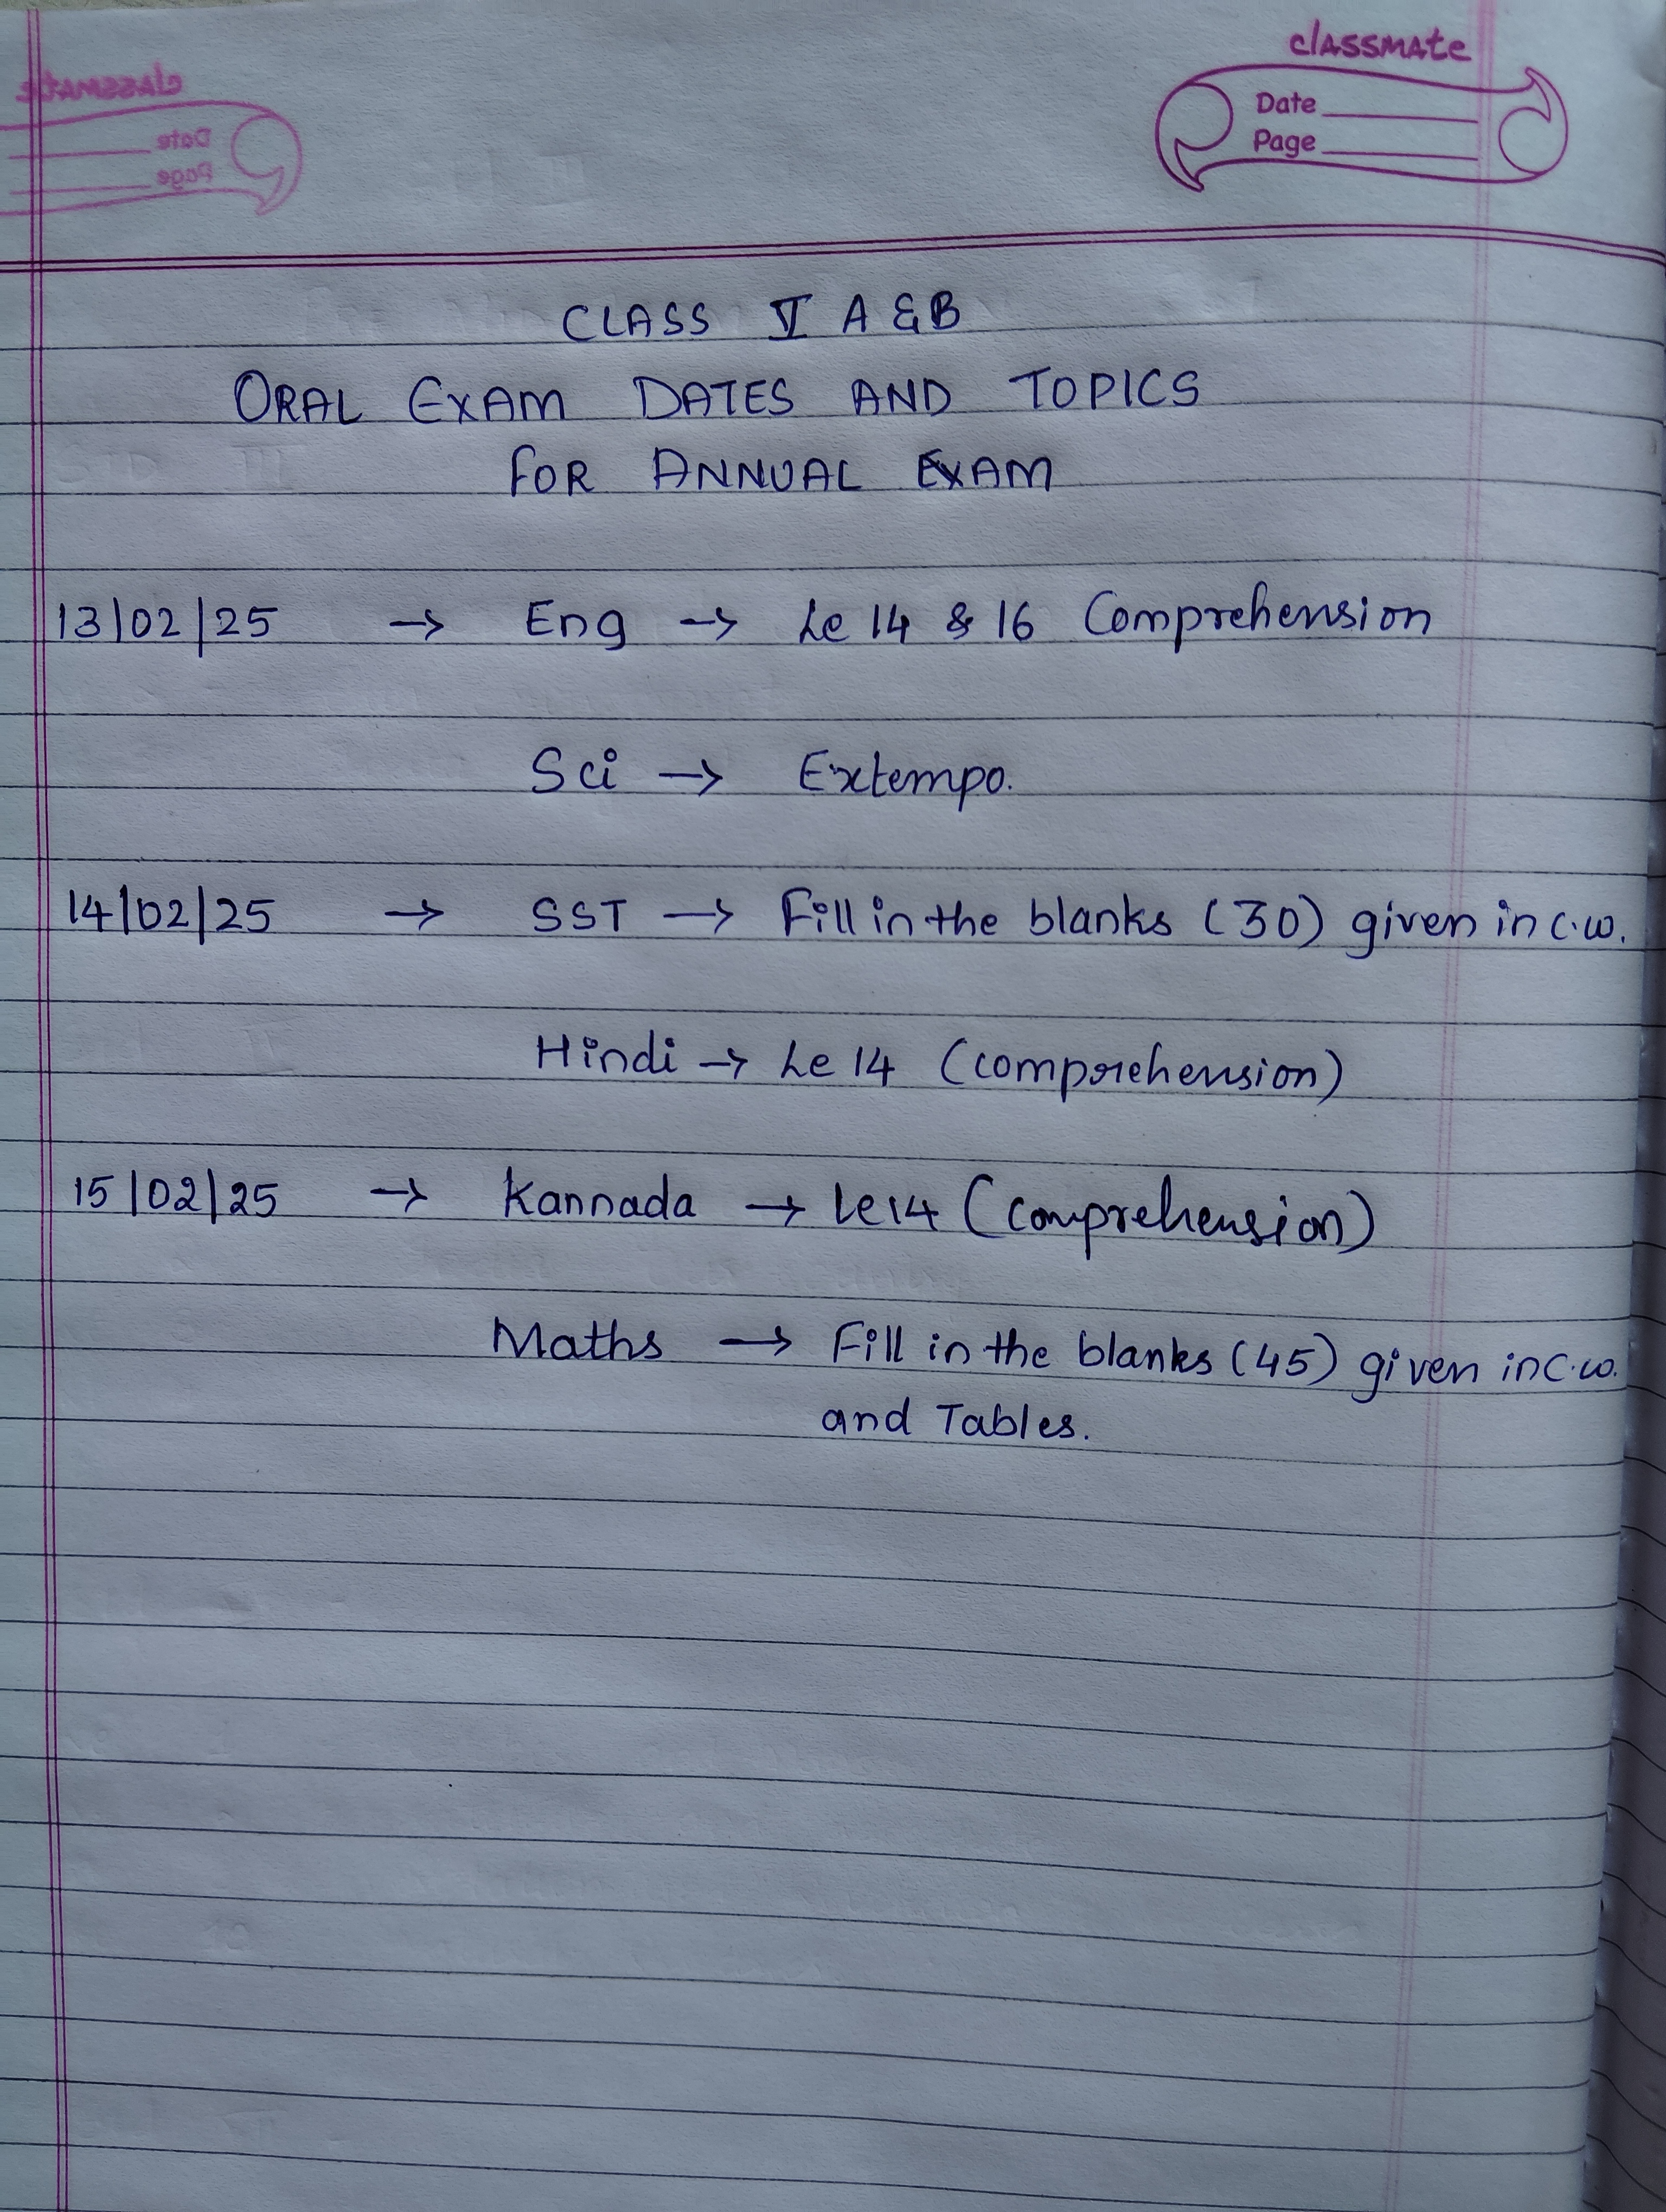 classmate
Date
Page
CLASS V A & B
ORAL EXAM DATES AND TOPICS
FOR ANNUAL EXAM
13/02/25 → Eng → Le 14 & 16 Comprehension
Sci → Extempo.
14/02/25 → SST → Fill in the blanks (30) given in c.w.
Hindi → Le 14 (comprehension)
15/02/25 → Kannada → Le 14 (comprehension)
Maths → Fill in the blanks (45) given in c.w.
and Tables.